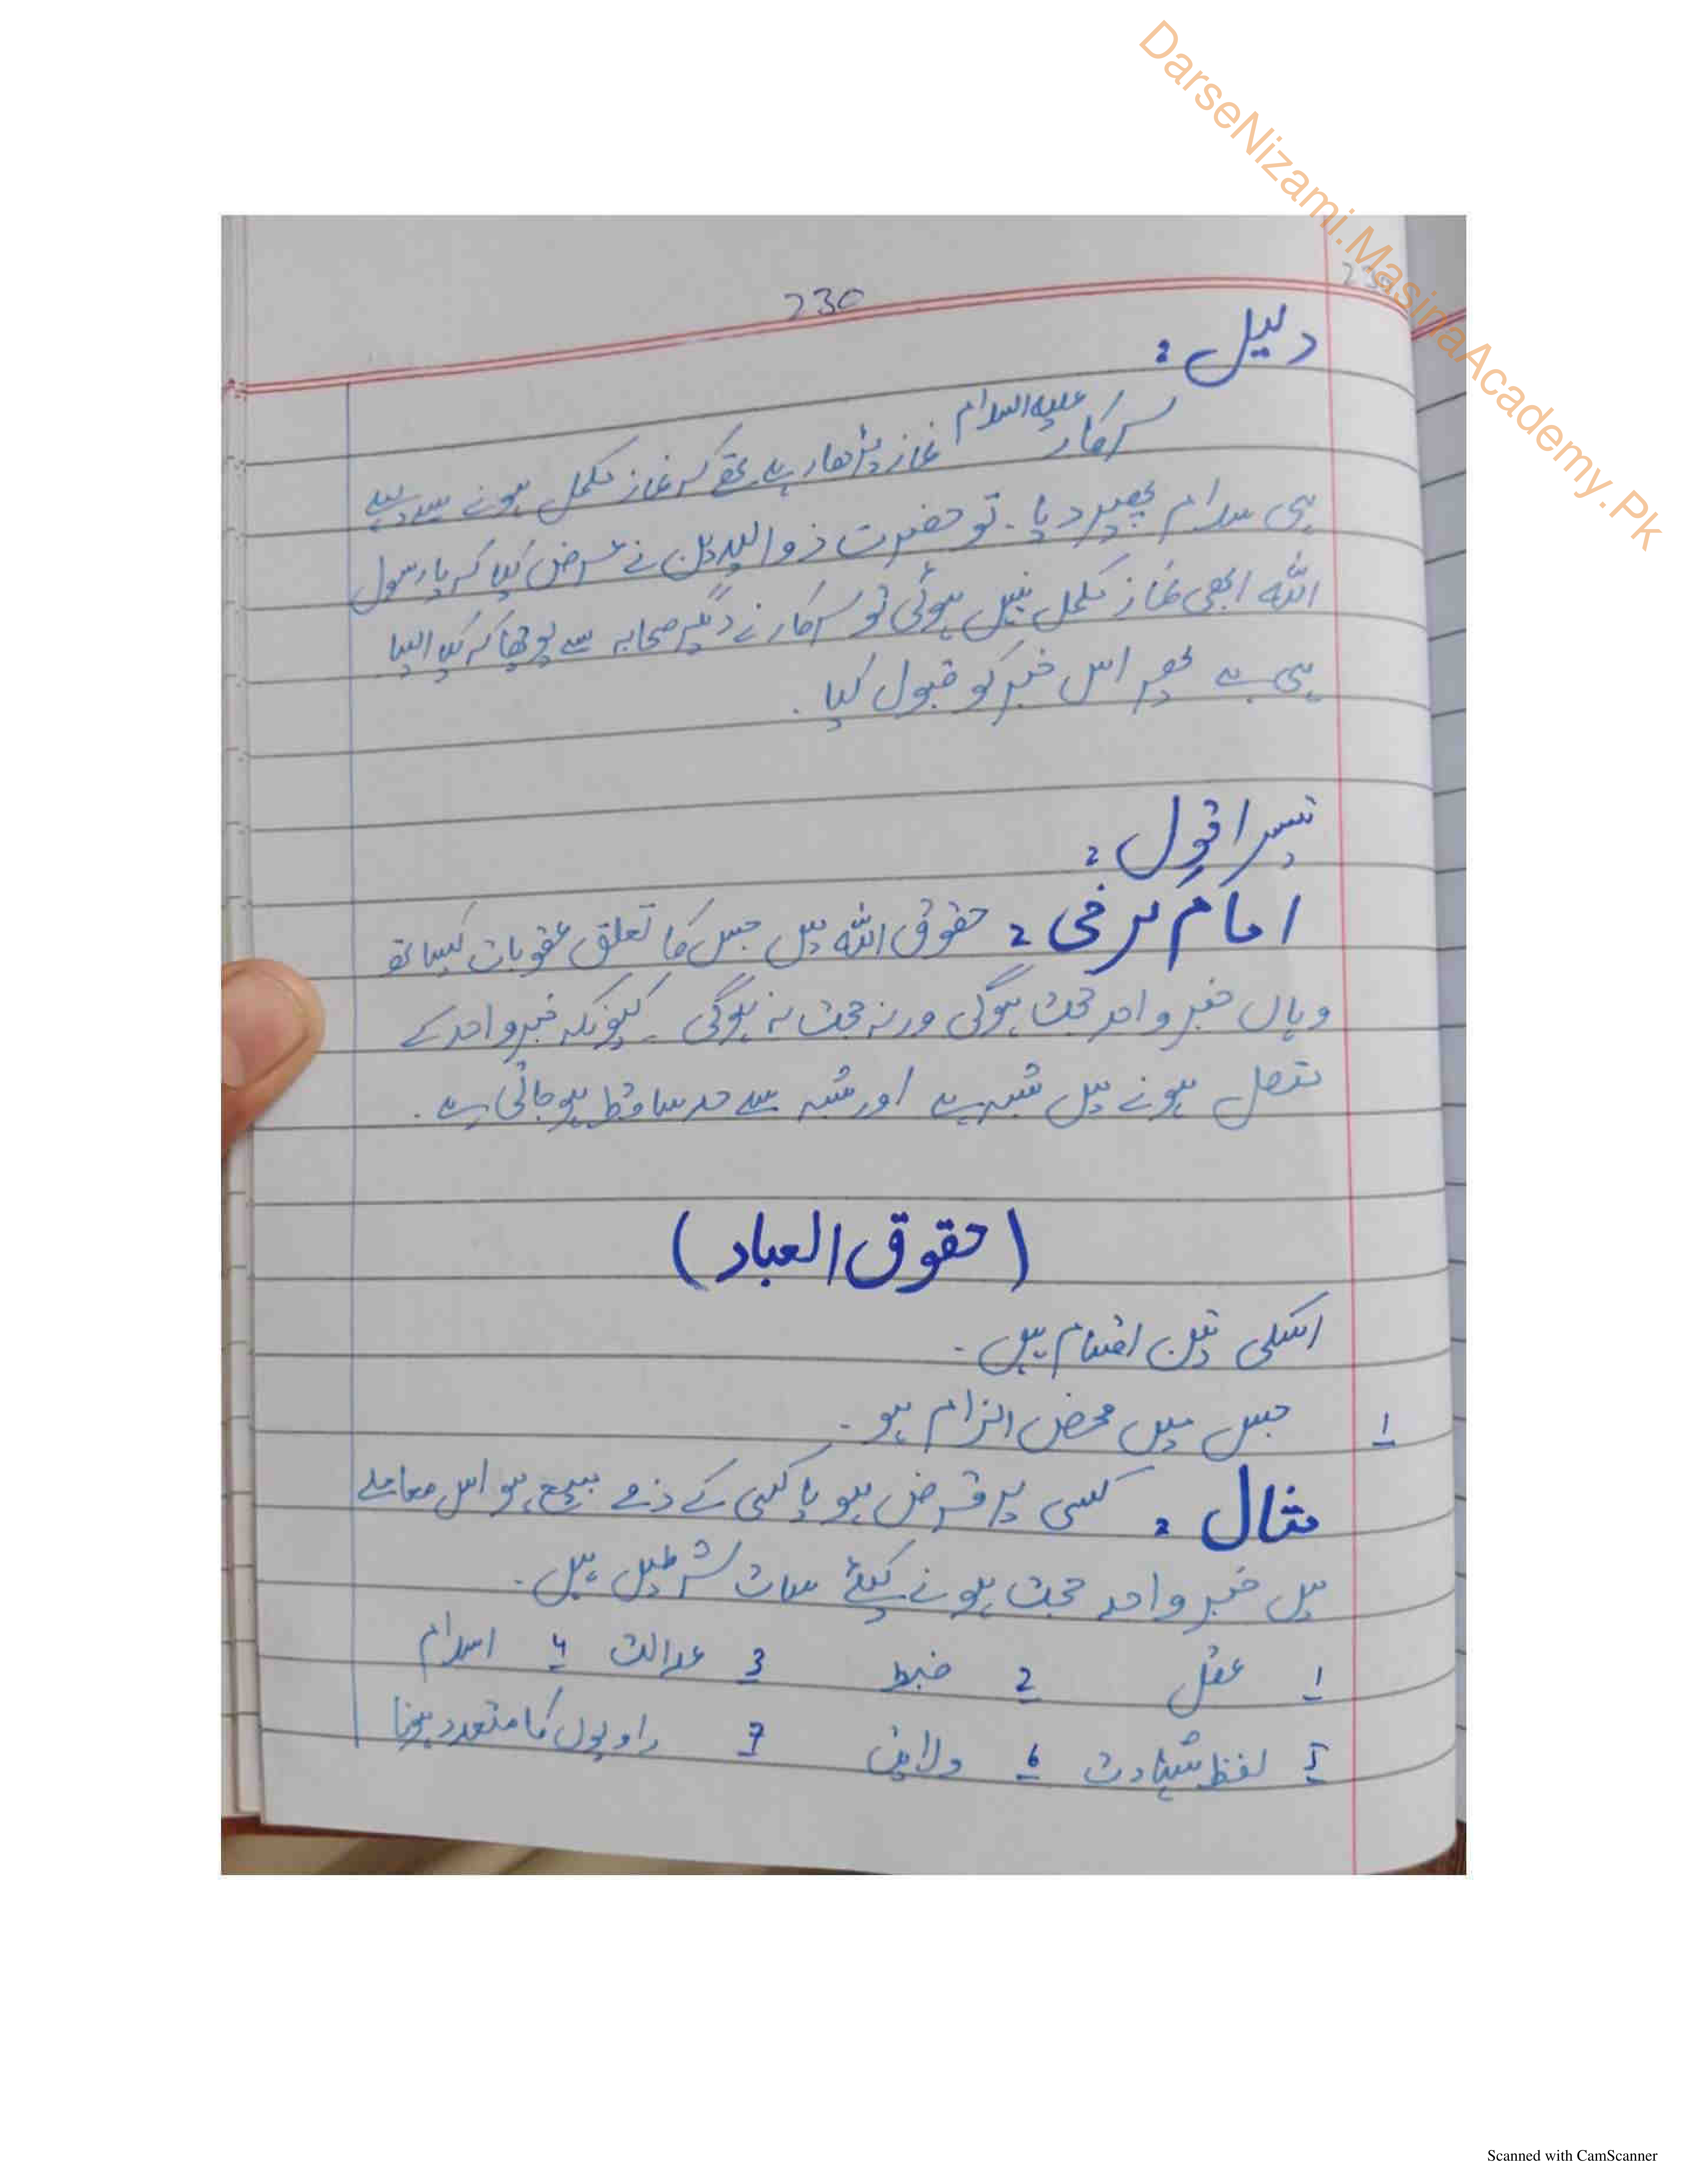 DarseNizami.MasinaAcademy.Pk
230
دلیل :
سرکار علیہ السلام نماز پڑھا رہے تھے کہ نماز مکمل ہونے سے پہلے
ہی سلام پھیر دیا ۔ تو حضرت ذوالیدین نے عرض کیا کہ یا رسول
اللہ ابھی نماز مکمل نہیں ہوئی تو سرکار نے دیگر صحابہ سے پوچھا کہ کیا ایسا
ہی ہے پھر اس خبر کو قبول کیا ۔
تیسرا قول :
امام کرخی : حقوق اللہ میں جس کا تعلق عقوبات کیساتھ
وہاں خبر واحد حجت ہوگی ورنہ حجت نہ ہوگی ۔ کیونکہ خبر واحد کے
متصل ہونے میں شبہ ہے اور شبہ سے حد ساقط ہو جاتی ہے ۔
(حقوق العباد)
اسکی تین اقسام ہیں ۔
1 جس میں محض الزام ہو ۔
مثال : کسی پر قرض ہو یا کسی کے ذمے بیع ہو اس معاملے
میں خبر واحد حجت ہونے کیلئے سات شرطیں ہیں ۔
1 عقل 2 ضبط 3 عدالت 4 اسلام
5 لفظ شہادت 6 ولایت 7 راویوں کا متعدد ہونا
Scanned with CamScanner